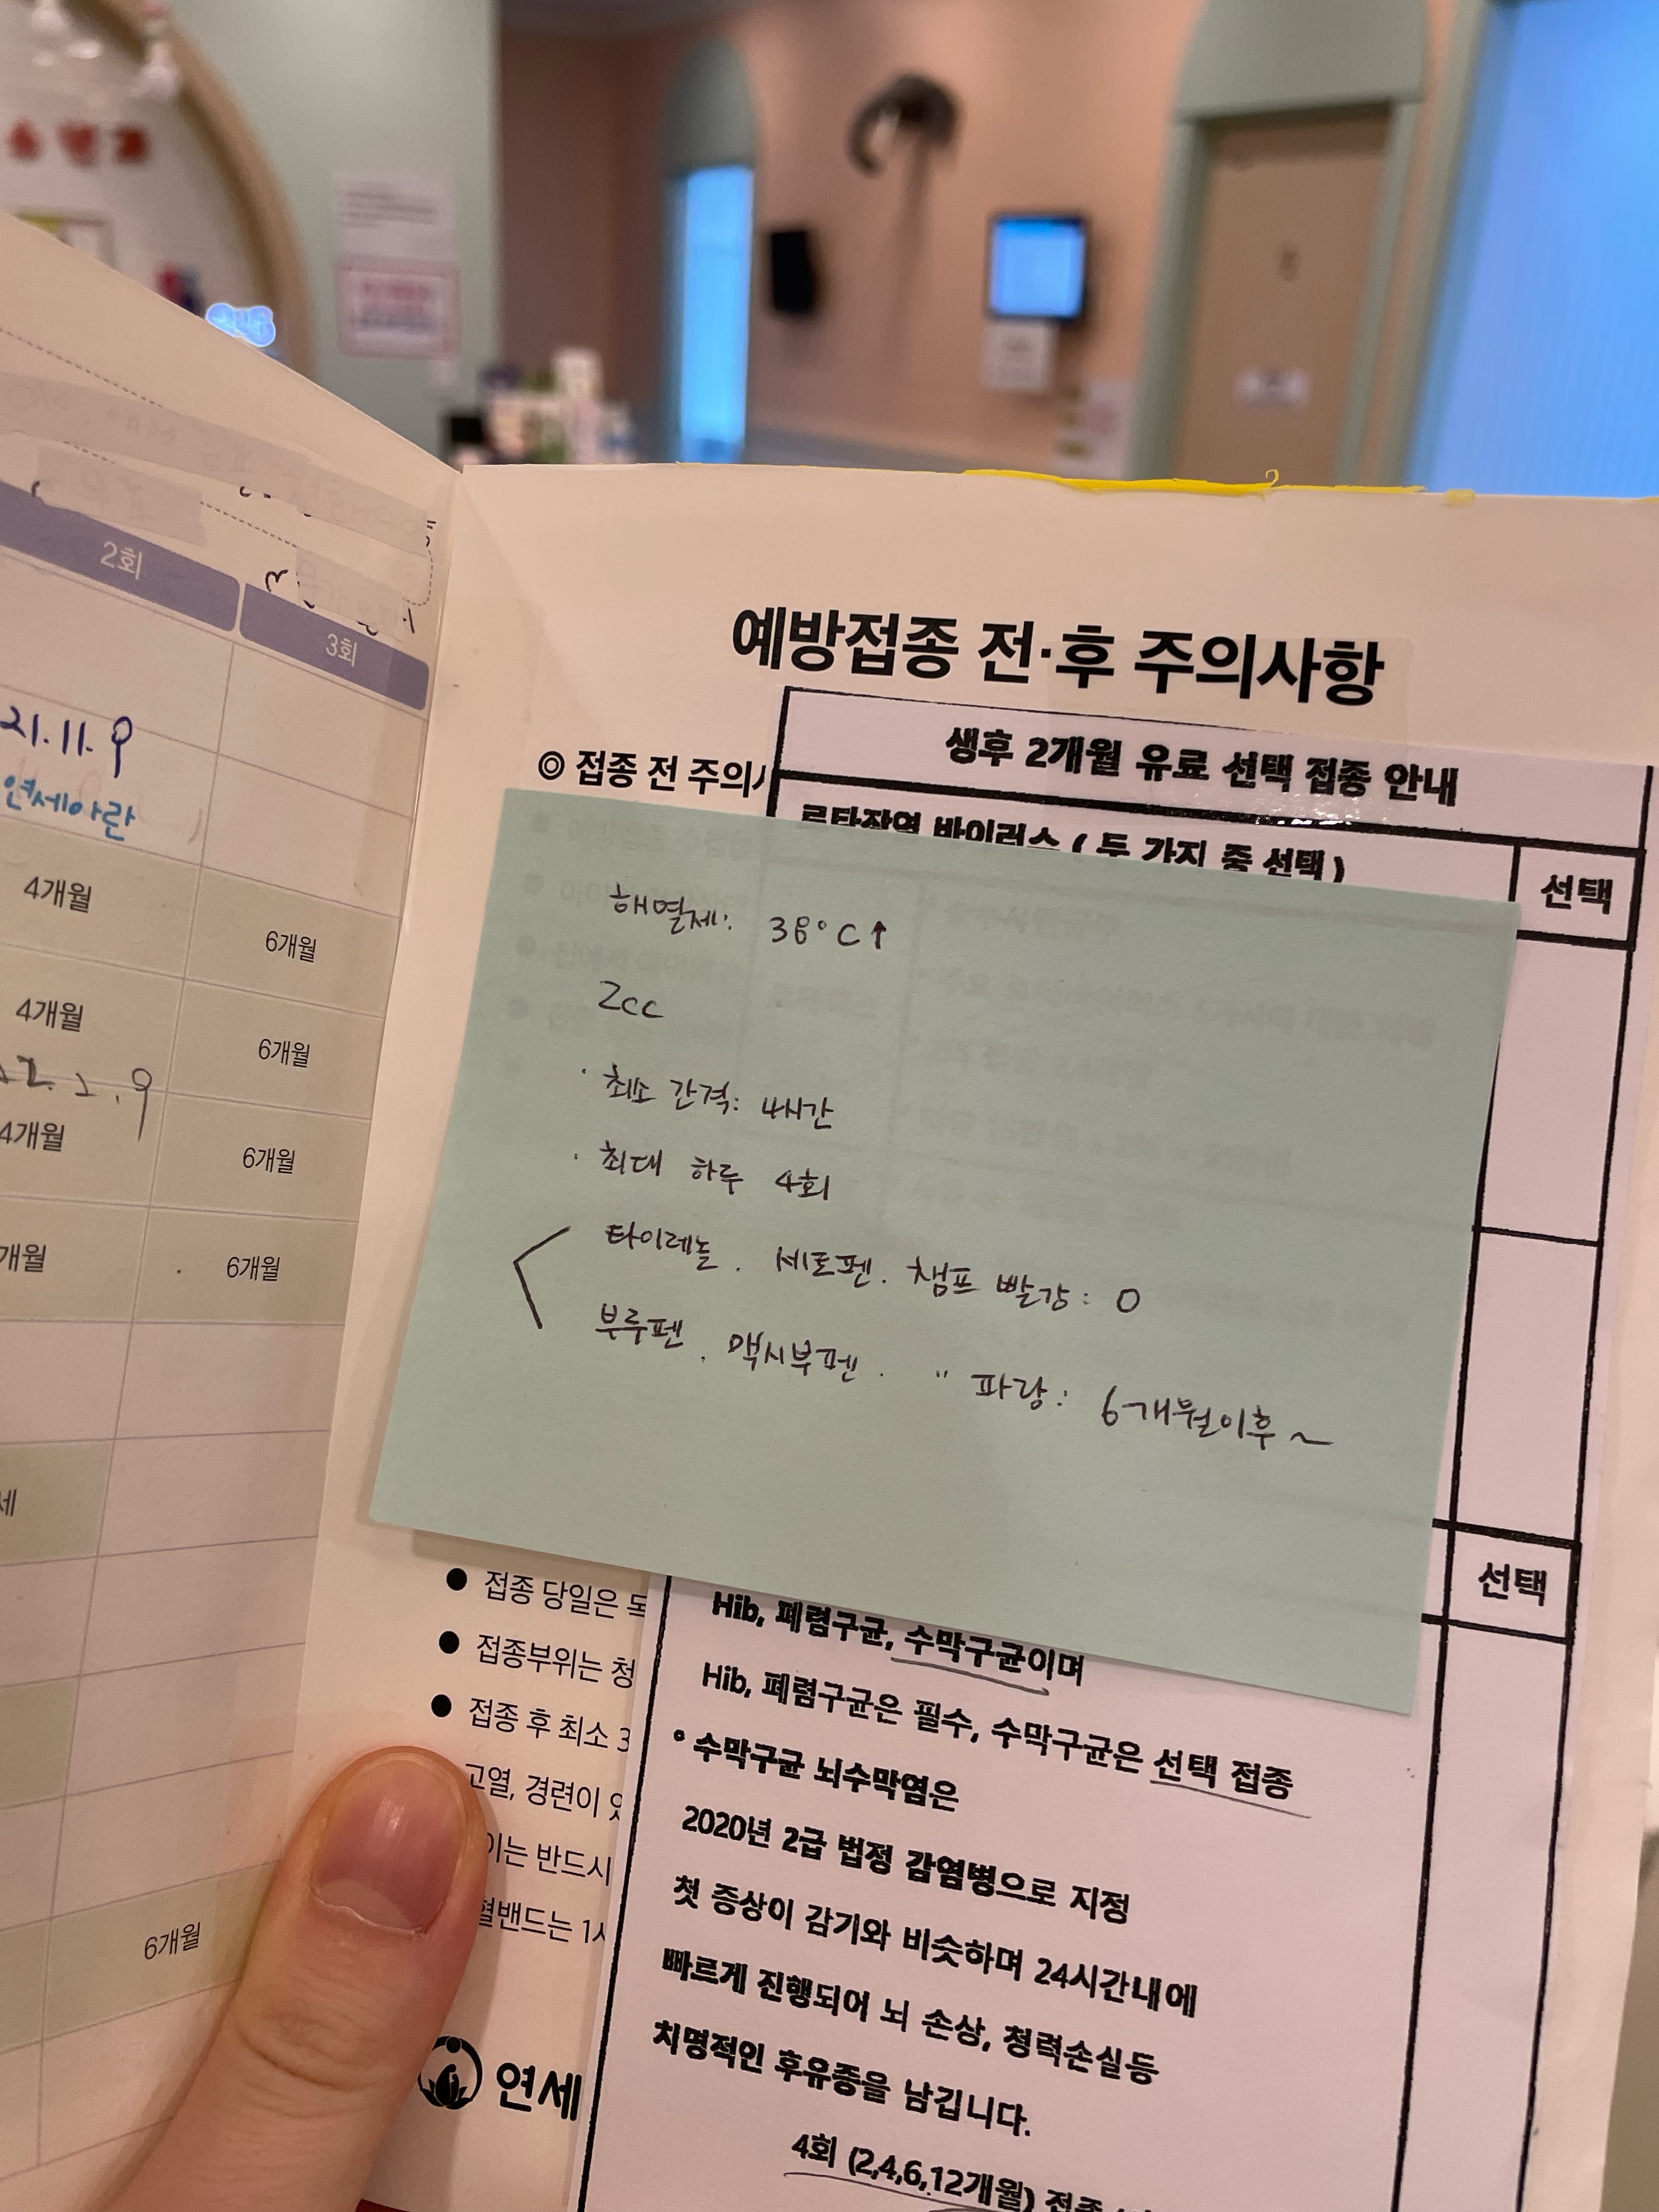 2회
3회
21.11.9
연세아란
4개월
6개월
4개월
6개월
4개월
6개월
개월
6개월
세
6개월
예방접종 전·후 주의사항
◎ 접종 전 주의
생후 2개월 유료 선택 접종 안내
로타장염 바이러스 ( 두 가지 중 선택 )
선택
해열제: 38°C↑
2cc
· 최소 간격: 4시간
· 최대 하루 4회
타이레놀. 세토펜. 챔프 빨강: O
부루펜. 맥시부펜. " 파랑: 6개월이후 ~
선택
● 접종 당일은
● 접종부위는 청
● 접종 후 최소 3
고열, 경련이
이는 반드시
혈밴드는 1시
연세
Hib, 폐렴구균, 수막구균이며
Hib, 폐렴구균은 필수, 수막구균은 선택 접종
• 수막구균 뇌수막염은
2020년 2급 법정 감염병으로 지정
첫 증상이 감기와 비슷하며 24시간내에
빠르게 진행되어 뇌 손상, 청력손실등
치명적인 후유증을 남깁니다.
4회 (2,4,6,12개월) 접종